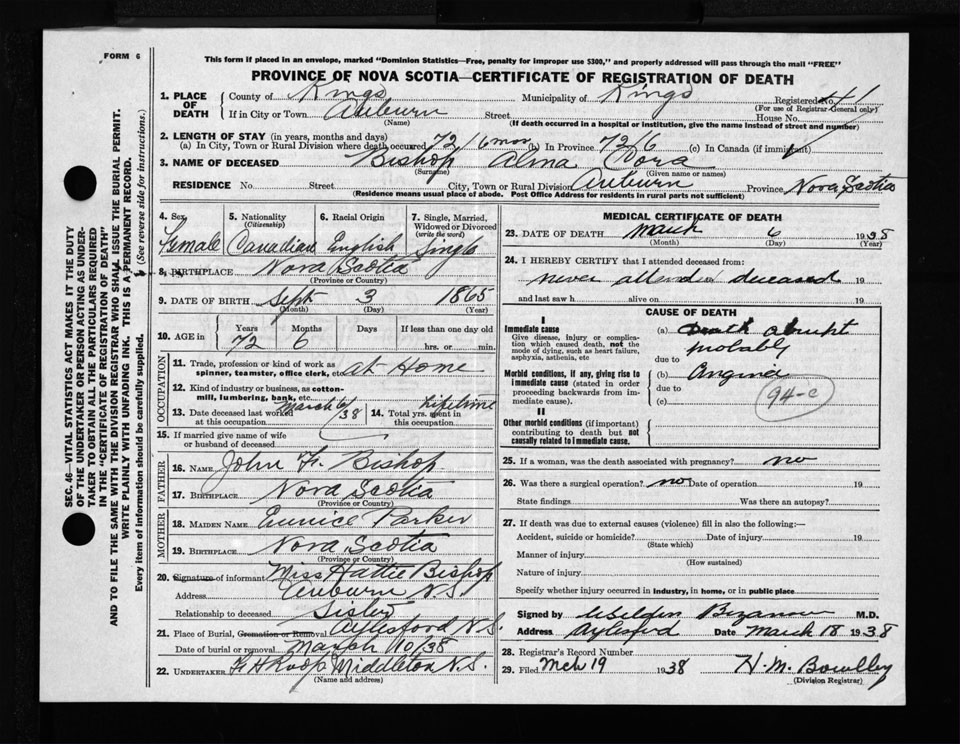 FORM 6
This form if placed in an envelope, marked "Dominion Statistics—Free, penalty for improper use $300," and properly addressed will pass through the mail "FREE"
PROVINCE OF NOVA SCOTIA—CERTIFICATE OF REGISTRATION OF DEATH
SEC. 46—VITAL STATISTICS ACT MAKES IT THE DUTY
OF THE UNDERTAKER OR PERSON ACTING AS UNDER-
TAKER TO OBTAIN ALL THE PARTICULARS REQUIRED
IN THE "CERTIFICATE OF REGISTRATION OF DEATH"
AND TO FILE THE SAME WITH THE DIVISION REGISTRAR WHO SHALL ISSUE THE BURIAL PERMIT.
WRITE PLAINLY WITH UNFADING INK. THIS IS A PERMANENT RECORD.
Every item of information should be carefully supplied. (See reverse side for instructions.)
1. PLACE OF DEATH
County of Kings Municipality of Kings Registered No.
(For use of Registrar-General only)
If in City or Town Auburn Street House No.
(Name) (If death occurred in a hospital or institution, give the name instead of street and number)
2. LENGTH OF STAY (in years, months and days)
(a) In City, Town or Rural Division where death occurred 72/6 mos (b) In Province 72/6 (c) In Canada (if immigrant)
3. NAME OF DECEASED Bishop Alma Cora
(Surname) (Given name or names)
RESIDENCE No. Street City, Town or Rural Division Auburn Province Nova Scotia
(Residence means usual place of abode. Post Office Address for residents in rural parts not sufficient)
4. Sex Female
5. Nationality (Citizenship) Canadian
6. Racial Origin English
7. Single, Married, Widowed or Divorced (write the word) Single
8. BIRTHPLACE Nova Scotia
(Province or Country)
9. DATE OF BIRTH Sept 3 1865
(Month) (Day) (Year)
10. AGE in Years 72 Months 6 Days If less than one day old hrs. or min.
OCCUPATION
11. Trade, profession or kind of work as spinner, teamster, office clerk, etc. At Home
12. Kind of industry or business, as cotton-mill, lumbering, bank, etc.
13. Date deceased last worked at this occupation March 6/38
14. Total yrs. spent in this occupation Lifetime
15. If married give name of wife or husband of deceased
FATHER
16. NAME John F. Bishop
17. BIRTHPLACE Nova Scotia
(Province or Country)
MOTHER
18. MAIDEN NAME Eunice Parker
19. BIRTHPLACE Nova Scotia
(Province or Country)
20. Signature of informant Miss Hattie Bishop
Address Auburn N.S.
Relationship to deceased Sister
21. Place of Burial, Cremation or Removal Aylesford N.S.
Date of burial or removal March 10/38
22. UNDERTAKER F. H Roop Middleton N.S.
(Name and address)
MEDICAL CERTIFICATE OF DEATH
23. DATE OF DEATH March 6 1938
(Month) (Day) (Year)
24. I HEREBY CERTIFY that I attended deceased from:
never attended deceased 19
and last saw h alive on 19
CAUSE OF DEATH
I
Immediate cause
Give disease, injury or complication which caused death, not the mode of dying, such as heart failure, asphyxia, asthenia, etc
(a) Death abrupt
due to probably
Morbid conditions, if any, giving rise to immediate cause (stated in order proceeding backwards from immediate cause).
(b) Angina
due to
(c)
94-c
II
Other morbid conditions (if important) contributing to death but not causally related to immediate cause.
25. If a woman, was the death associated with pregnancy? no
26. Was there a surgical operation? no Date of operation 19
State findings Was there an autopsy?
27. If death was due to external causes (violence) fill in also the following:—
Accident, suicide or homicide? Date of injury 19
(State which)
Manner of injury
(How sustained)
Nature of injury
Specify whether injury occurred in industry, in home, or in public place
Signed by M.D.
Address Aylesford Date March 18 1938
28. Registrar's Record Number
29. Filed Mch 19 1938 H. M.
(Division Registrar)